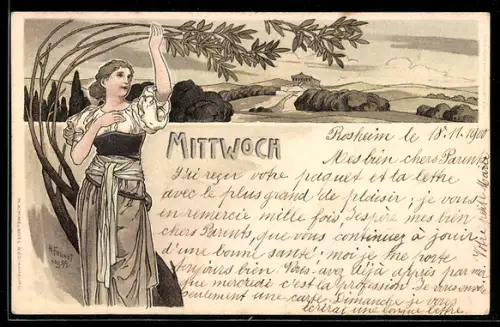 MITTWOCH
Rosheim le 18.11.1900
Mes bien chers Parents
J'ai reçer votre paquet et la lettre
avec le plus grand de plaisir; je vous
en remercie mille fois, j'espère mes bien
chers Parents, que vous continuez à jouir
d'une bonne santé; moi je me porte
toujours bien. Vous avez déjà appris par
que mercredi c'est la profession. Je vous
seulement une carte. Dimanche je vous
écrirai une longue lettre.
Votre Marie
H. Faunet